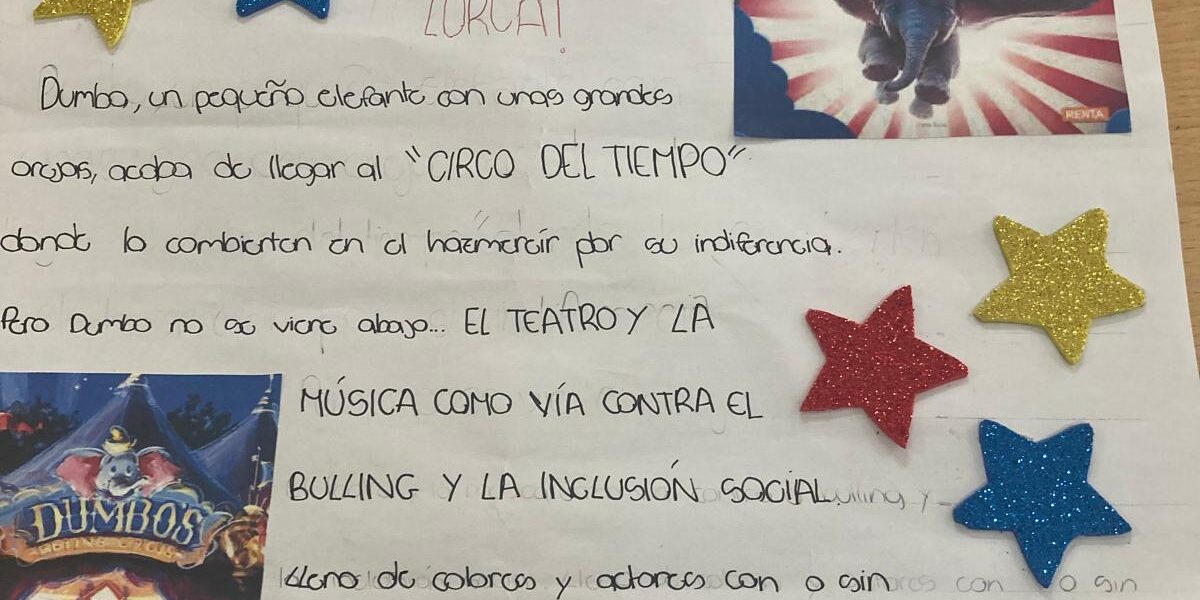 LORCA!
RENTA
Dumbo, un pequeño elefante con unas grandes
orejas, acaba de llegar al "CIRCO DEL TIEMPO"
donde lo combierten en el hazmerreír por su indiferencia.
Pero Dumbo no se viene abajo... EL TEATRO Y LA
MÚSICA COMO VÍA CONTRA EL
BULLING Y LA INCLUSIÓN SOCIAL.
DUMBOS
CIRCUS
lleno de colores y actores con o sin